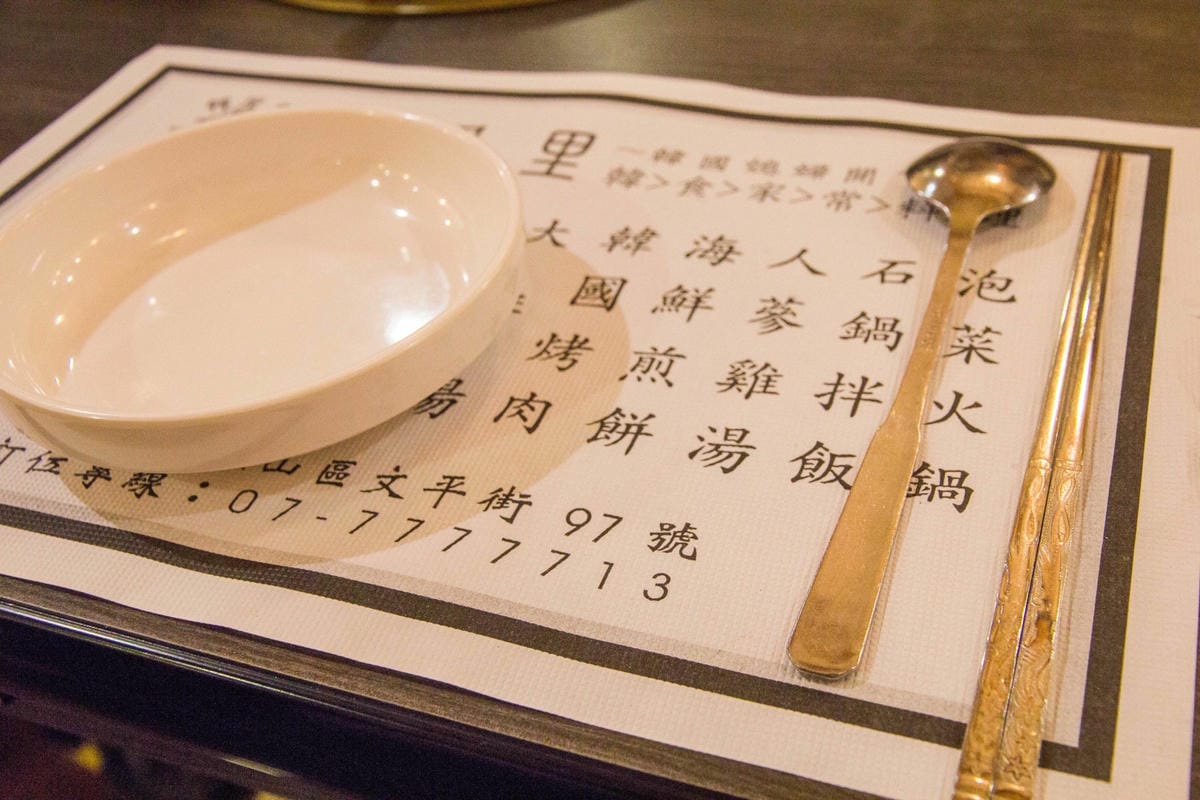 里
~韓國媳婦開
韓>食>家>常>料>理
泡菜火鍋
石鍋拌飯
人蔘雞湯
海鮮煎餅
韓國烤肉
大 湯
山區文平街97號
訂位專線:07-7777713